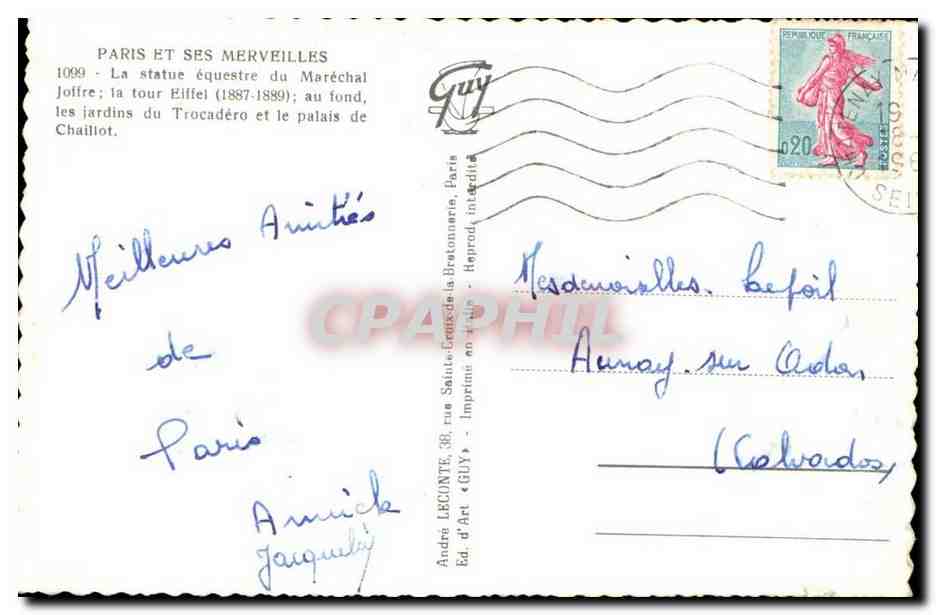 PARIS ET SES MERVEILLES
1099 - La statue équestre du Maréchal
Joffre; la tour Eiffel (1887-1889); au fond,
les jardins du Trocadéro et le palais de
Chaillot.
Meilleures Amitiés
de
Paris
Annick
Guy
André LECONTE, 38, rue Sainte-Croix-de-la-Bretonnerie, Paris
Ed. d'Art «GUY» - Imprimé en Italie - Reprod. interdite
REPUBLIQUE FRANÇAISE
0,20
POSTES
Mesdemoiselles Lefoil
Aunay-sur Odon
(Calvados)
CPAPHIL